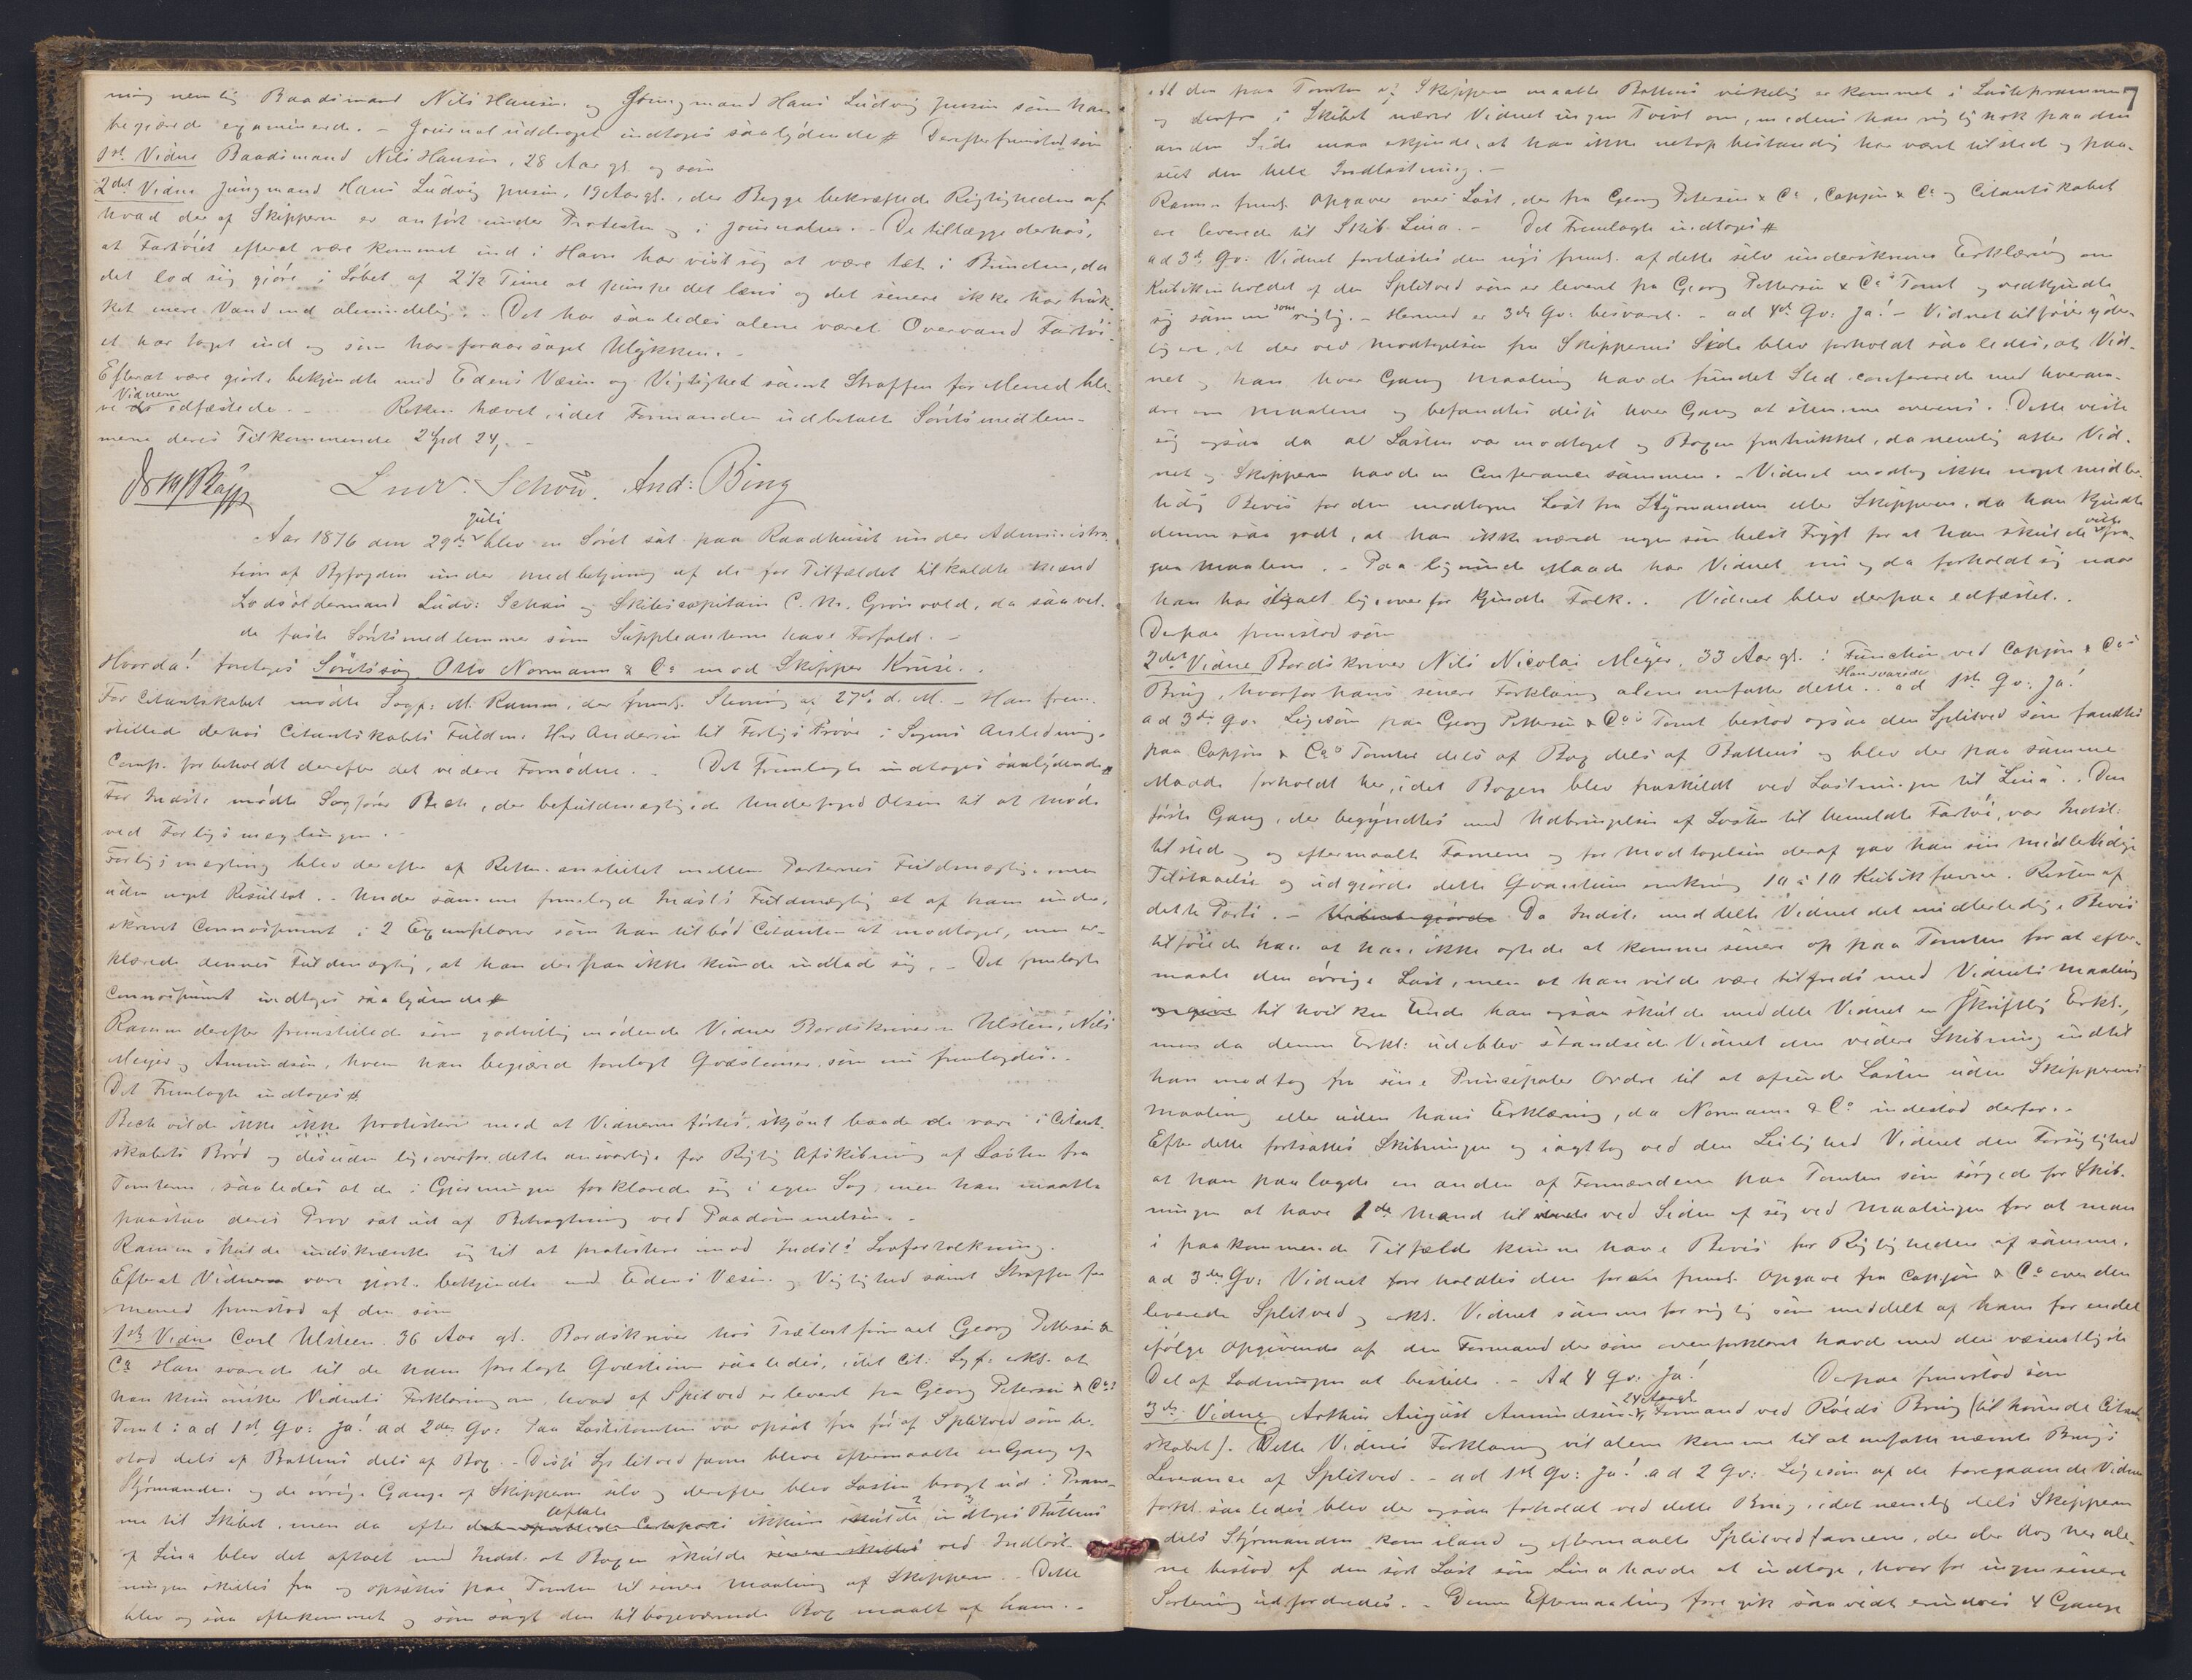 ning nemlig Baadsmand Nils Hansen og Jüngmand Hans Lüdvig Jensen som han
begjærede examinerede. - Journaluddraget indtoges saalydende # Derefter fremstod som
1ste Vidne Baadsmand Nils Hansen, 28 Aar gl. og som
2det Vidne Jüngmand Hans Lüdvig Jensen, 19 Aar gl., der Begge bekræftede Rigtigheden af
hvad der af Skipperen er anført ünder Protesten og i Journalen. - De tillægge derhos,
at Fartöiet efterat være kommet ind i Havn har vist sig at være tæt i Bünden, da
det lod sig gjöre i Löbet af 2½ Time at pümpe det læns og det senere ikke har trük-
ket mere Vand end almindelig. - Det har saaledes alene været Overvand Fartöi-
et har taget ind og som har foraarsaget Ulykken. -
Efterat være gjorte bekjendte med Edens Væsen og Vigtighed samt Straffen for Meened ble-
ve Vidnerne edfæstede. - Retten hævet, idet Formanden udbetalte Söretsmedlem-
mene deres Tilkommende 2 Spd 24,. -
Lüdv. Schoü. And: Bing
Aar 1876 den 29de Juli blev en Söret sat paa Raadhüset ünder Administra-
tion af Byfogden ünder Medbetjening af de for Tilfældet tilkaldte Mænd
Lodsoldermand Lüdv: Schoü og Skibscapitain C. M. Grönvold, da saavel
de faste Söretsmedlemmer som Süppleanterne have Forfald. -
Hvorda! foretoges Söretssag Otto Normann & Co mod Skipper Krüse. -
For Citantskabet mödte Sagf: M. Ramm, der freml. Stevning af 27de d. M. - Han frem-
stillede derhos Citantskabets Füldm: Hr Andersen til Forligs Pröve i Sagens Anledning.
Comp. forbeholdt derefter det videre Fornödne. - Det Fremlagte indtoges saalydende #
For Indst: mödte Sagförer Bech, der befüldmægtigede Underfoged Olsen til at möde
ved Forligsmæglingen. -
Forligsmægling blev derefter af Retten anstillet mellem Parternes Füldmægtige men
üden noget Resültat. - Under samme fremlagde Indst's Füldmægtig et af ham ünder-
skrevet Connossement i 2 Exemplarer som han tilböd Citanten at modtage, men er-
klærede dennes Füldmægtig, at han derpaa ikke künde indlade sig. - Det fremlagte
Connossement indtoges saalydende #
Ramm derefter fremstillede som godvillig mödende Vidner Bordskriverne Ulsteen, Nils
Meyer og Amündsen, hvem han begjærede forelagt Qvæstioner, som nü fremlagdes. -
Det Fremlagte indtoges #
Bech vilde ikke ikke protestere mod at Vidnerne förtes, skjönt baade de vare i Citant-
skabets Bröd og desüden ligeoverfor dette ansvarlige for Rigtig Afskibning af Lasten fra
Tomterne, saaledes at de i Gjerningen forklarede sig i egen Sag, men han maatte
paastaa deres Prov sat üd af Betragtning ved Paadömmelsen. -
Ramm skülde indskrænke sig til at protestere imod Indst's Lovfortolkning.
Efterat Vidnerne vare gjort bekjendte med Edens Væsen og Vigtighed samt Straffen for
Meened fremstod af dem som
1ste Vidne Carl Ulsteen, 36 Aar gl. Bordskriver hos Trælastfirmaet Georg Pettersen &
Co Han svarede til de ham forelagte Qvæstioner saaledes, idet Cit: Sagf. erkl. at
han kün önsker Vidnets Forklaring om, hvad af Splitved er leveret fra Georg Petersen & Co's
Tomt: ad 1ste Qv: Ja! ad 2den Qv: Paa Lastetomten var opsat fra för af Splitved som be-
stod dels af Battens dels af Bog. - Disse Splitvedfavne bleve eftermaalte en Gang af
Styrmanden og de övrige Gange af Skipperen selv og derefter blev Lasten bragt üd i Pram-
me til Skibet, men da efter Aftale ikkün skülde indtages Battens
af Lina blev det aftalt med Indst: at Bogen skülde ved Indlast-
ningen skilles fra og opsættes paa Tomten til senere Maaling af Skipperen. - Dette
blev ogsaa efterkommet og som sagt den tilbageværende Bog maalt af ham. -
7
At den paa Tomten af Skipperen maalte Battens virkelig er kommet i Lastepramme
og derfra i Skibet nærer Vidnet ingen Tvivl om, medens han rigtignok paa den
anden Side maa erkjende, at han ikke netop bestandig har været tilstede og paa-
seet den hele Indlastning. -
Ramm freml. Opgaver over Last, der fra Georg Petersen & Co, Cappjen & Co og Citantskabet
ere leverede til Skib. Lina. - Det Fremlagte indtoges #
ad 3de Qv: Vidnet forelæstes den nys freml. af dette selv ünderskrevne Erklæring om
Kübikinholdet af den Splitved som er leveret fra Georg Pettersen & Co's Tomt og vedkjendte
sig samme som rigtig. - Hermed er 3de Qv: besvaret. - ad 4de Qv: Ja! - Vidnet tilföier yder-
ligere, at der ved Modtagelsen fra Skipperens Side blev forholdt saaledes, at Vid-
net og han hver Gang Maaling havde fündet Sted confererede med hveran-
dre om Maalene og befandtes disse hver Gang at stemme overens. Dette viste
sig ogsaa da al Lasten var modtaget og Bogen fratrükket, da nemlig atter Vid-
net og Skipperen havde en Conferance sammen. - Vidnet modtog ikke noget midler-
tidig Bevis for den modtagne Last fra Styrmanden eller Skipperen, da han kjendte
denne saa godt, at han ikke nærede nogen somhelst Frygt for at han skülde ville fra-
gaa Maalene. - Paa lignende Maade har Vidnet nü og da forholdt sig naar
han har skibet ligeoverfor kjendte Folk. . Vidnet blev derpaa edfæstet. .
Derpaa fremstod som
2det Vidne Bordskriver Nils Nicolai Meyer, 33 Aar gl. i Fünction ved Cappjen & Co's
Brüg, hvorfor hans senere Forklaring alene omfatter dette. - Han svarede ad 1ste Qv: Ja!
ad 3de Qv: Ligesom paa Georg Pettersen & Co's Tomt bestod ogsaa den Splitved som fandtes
paa Cappjen & Co's Tomter dels af Bog dels af Battens og blev der paa samme
Maade forholdt her, idet Bogen blev fraskildt ved Lastningen til "Lina". . Den
förste Gang, der begyndtes med Udbringelsen af Lasten til bemeldte Fartöi, var Indst:
tilstede og eftermaalte Favnene og for Modtagelsen deraf gav han sin midlertidige
Tilstaaelse og üdgjorde dette Qvantüm omkring 10 à 10 Kübikfavne. Resten af
dette Parti. - Da Indst: meddelte Vidnet det midlertidige Bevis
tilföiede han at han ikke agtede at komme senere op paa Tomten for at efter-
maale den övrige Last, men at han vilde være tilfreds med Vidnets Maaling
til hvilken Ende han ogsaa skülde meddele Vidnet en skriftlig Erkl.,
men da denne Erkl: üdeblev standsede Vidnet den videre Skibning indtil
han modtog fra sine Principaler Ordre til at afsende Lasten üden Skipperens
Maaling eller üden hans Erklæring, da Normann & Co indestod derfor. -
Efter dette fortsattes Skibningen og iagttog ved den Leilighed Vidnet den Forsigtighed
at han paalagde en anden af Formændene paa Tomten som sörgede for Skib-
ningen at have 1 Mand til ved Siden af sig ved Maalingen for at man
i paakommende Tilfælde künne have Bevis for Rigtigheden af samme.
ad 3de Qv: Vidnet foreholdtes den foran freml. Opgave fra Cappjen & Co over den
leverede Splitved og erkl. Vidnet samme for rigtig som meddelt af ham for endel
ifölge Opgivende af den Formand der som ovenforklaret havde med den væsentligste
Del af Ladningen at bestille. - Ad 4 Qv: Ja! Derpaa fremstod som
3de Vidne Arthur Aügüst Amündsen 24 Aar gl. Formand ved Röeds Brüg (tilhörende Citant-
skabet). Dette Vidnes Forklaring vil alene komme til at omfatte nævnte Brügs
Leverance af Splitved. - ad 1ste Qv: Ja! ad 2 Qv: Ligesom af de foregaaende Vidner
forkl. saaledes blev der ogsaa forholdt ved dette Brüg, idet nemlig dels Skipperen
dels Styrmanden kom iland og eftermaalte Splitvedfavnene, der der dog her ale-
ne bestod af den sort Last som Lina havde at indtage, hvorfor ingen senere
Sortering üdfordredes. - Denne Eftermaaling foregik saavidt erindres 4 Gange